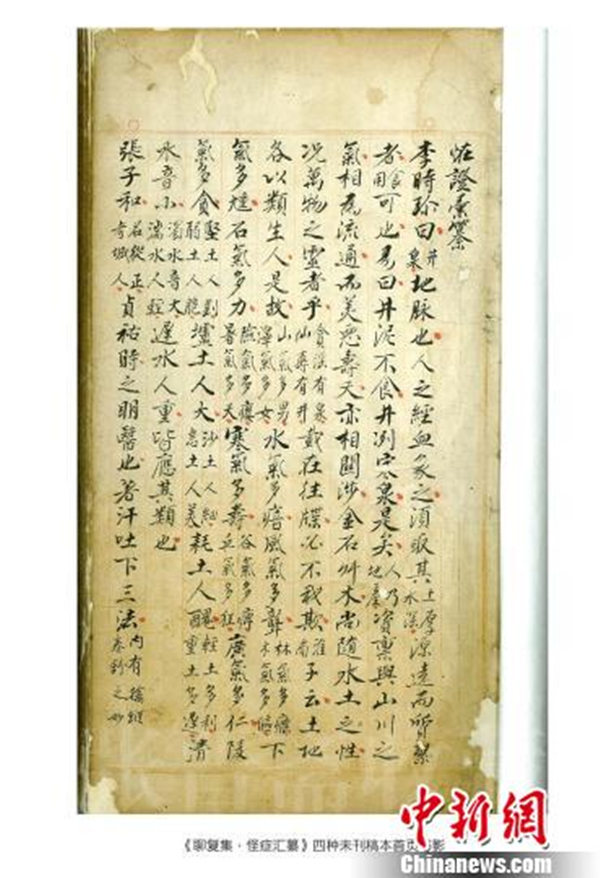 怪證彙纂
李時珍曰井泉地脉也人之經血象之須取其土厚水深源遠而質潔
者食用可也易曰井泥不食井冽寒泉是矣人乃地產資稟與山川之
氣相為流通而美惡壽夭亦相關涉金石艸木尚隨水土之性
况萬物之靈者乎貪淫有泉仙壽有井載在往牒必不我欺淮南子云土地
各以類生人是故山氣多男澤氣多女水氣多瘖風氣多聾林氣多癃木氣多傴下
氣多尰石氣多力險氣多癭暑氣多夭寒氣多壽谷氣多痹丘氣多狂廣氣多仁陵
氣多貪堅土人剛弱土人脆壚土人大沙土人細息土人美耗土人醜輕土多利重土多遲清
水音小濁水音大湍水人輕遲水人重皆應其類也
張子和名從正考城人貞祐時之明醫也著汗吐下三法內有擒縱卷舒之妙
《聊复集·怪症汇纂》四种未刊稿本首页影
中新網
Chinanews.com